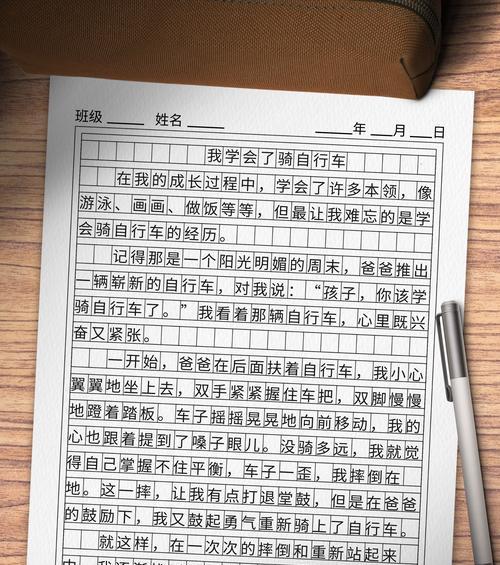 班级 姓名 年 月 日
我学会了骑自行车
在我的成长过程中，学会了许多本领，像
游泳、画画、做饭等等，但最让我难忘的是学
会骑自行车的经历。
记得那是一个阳光明媚的周末，爸爸推出
一辆崭新的自行车，对我说：“孩子，你该学
骑自行车了。”我看着那辆自行车，心里既兴
奋又紧张。
一开始，爸爸在后面扶着自行车，我小心
翼翼地坐上去，双手紧紧握住车把，双脚慢慢
地蹬着踏板。车子摇摇晃晃地向前移动，我的
心也跟着提到了嗓子眼儿。没骑多远，我就觉
得自己掌握不住平衡，车子一歪，我摔倒在
地。这一摔，让我有点打退堂鼓，但是在爸爸
的鼓励下，我又鼓起勇气重新骑上了自行车。
就这样，在一次次的摔倒和重新站起来